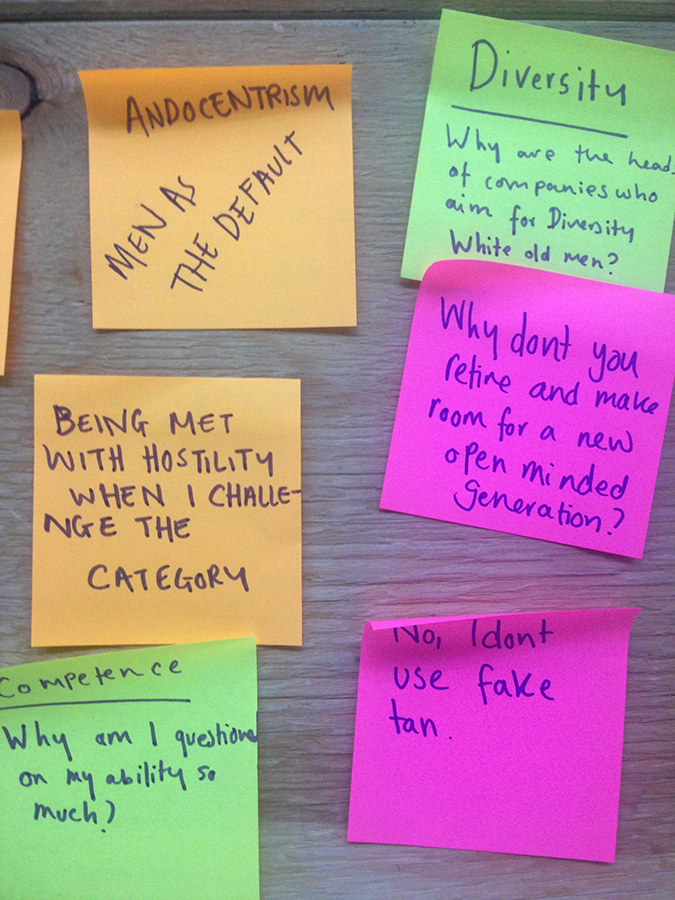 ANDOCENTRISM
MEN AS
THE DEFAULT
Diversity
Why are the heads
of companies who
aim for Diversity
White old men?
Why dont you
retire and make
room for a new
open minded
generation?
BEING MET
WITH HOSTILITY
WHEN I CHALLE-
NGE THE
CATEGORY
No, I dont
use fake
tan.
Competence
Why am I questione
on my ability so
much?